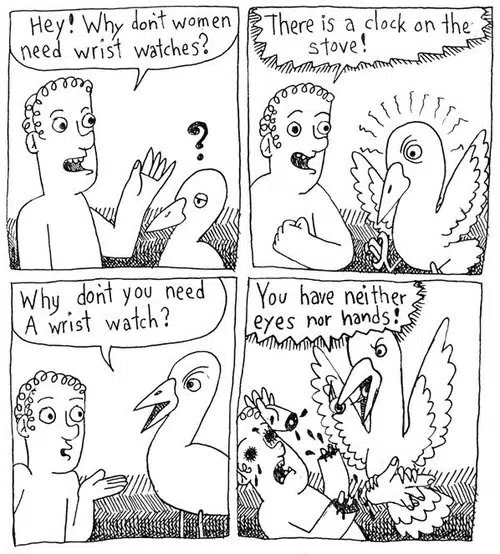 Hey! Why don't women
need wrist watches?
?
There is a clock on the
stove!
Why don't you need
A wrist watch?
You have neither
eyes nor hands!